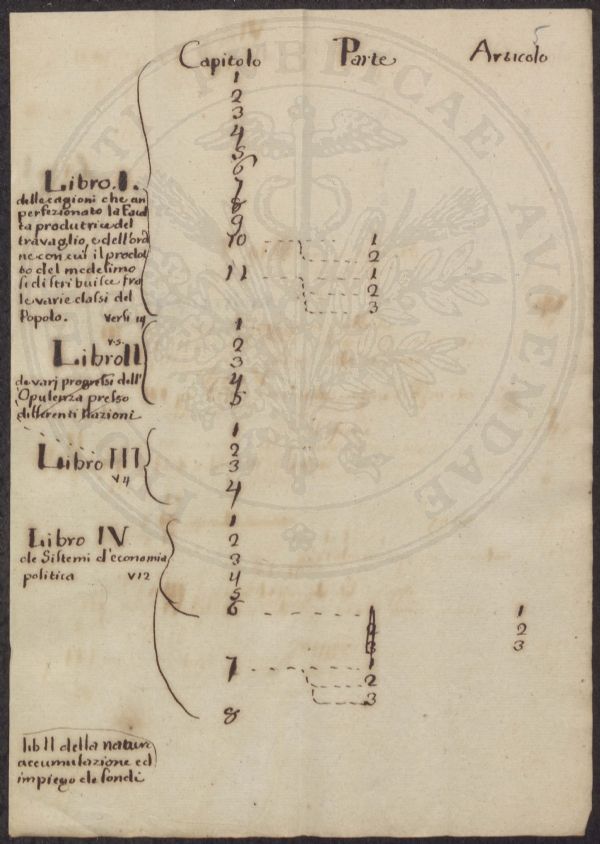 5
Capitolo Parte Articolo
1
2
3
4
5
6
7
8
9
10 1
2
11 1
2
3
Libro. I.
delle cagioni che an
perfezionato la Facol
ta produtrice del
travaglio, e dell'ordi
ne con cui il prodot
to del medesimo
si distribuisce tra
le varie classi del
Popolo. Versi 19
1
2
3
4
5
v.s.
Libro II
de varj progressi dell'
Opulenza presso
differenti Nazioni
1
2
3
4
Libro III
v 4
1
2
3
4
5
6 1 1
2 2
3 3
7 1
2
3
8
Libro IV
de Sistemi d'economia
politica v 12
lib II della natura
accumulazione ed
impiego de fondi
PUBLICAE
AUGENDAE